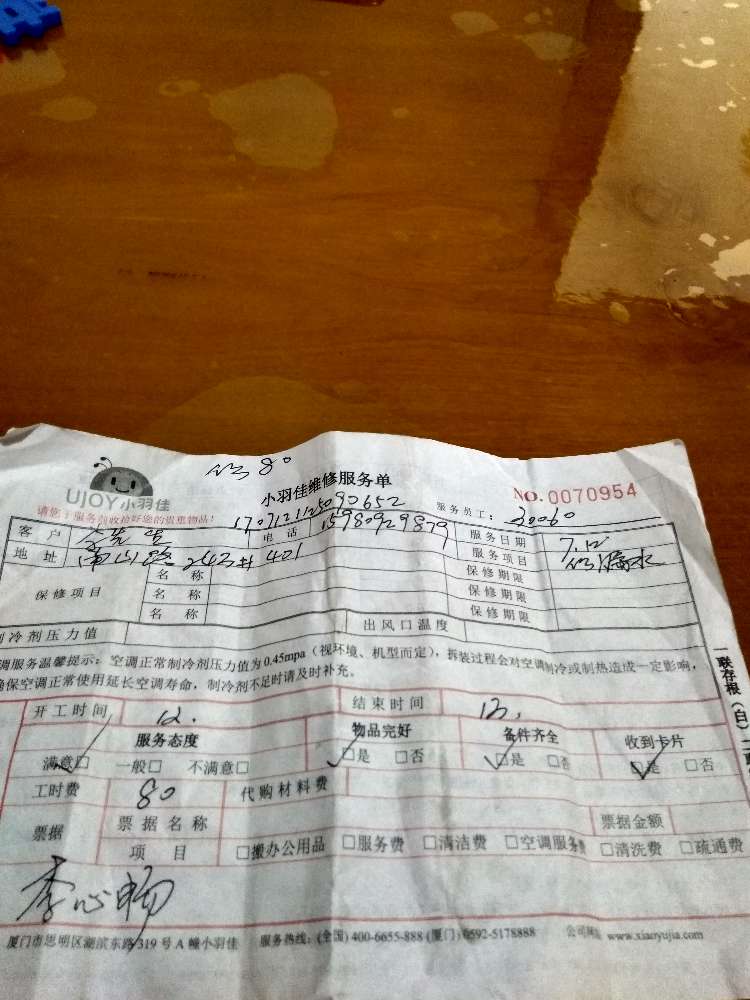 80
小羽佳维修服务单
UJOY小羽佳
NO. 0070954
请您于服务前收拾好您的贵重物品!
1707121125090652
服务员工: 30060
客户 电话 15980929879 服务日期 7.12
地址 南山路243# 401 服务项目 漏水
保修项目 名称 保修期限
名称 保修期限
名称 保修期限
制冷剂压力值 出风口温度
调服务温馨提示: 空调正常制冷剂压力值为0.45mpa (视环境、机型而定), 拆装过程会对空调制冷或制热造成一定影响,
确保空调正常使用延长空调寿命, 制冷剂不足时请及时补充。
一联存根(白)二联
开工时间 12. 结束时间 13.
服务态度 物品完好 备件齐全 收到卡片
满意□ 一般□ 不满意□ □是 □否 □是 □否 □是 □否
工时费 80 代购材料费
票据 票据名称 票据金额
项目 □搬办公用品 □服务费 □清洁费 □空调服务费 □清洗费 □疏通费
李心畅
厦门市思明区湖滨东路319号A幢小羽佳 服务热线: (全国) 400-6655-888 (厦门) 0592-5178888 公司网址 www.xiaoyujia.com